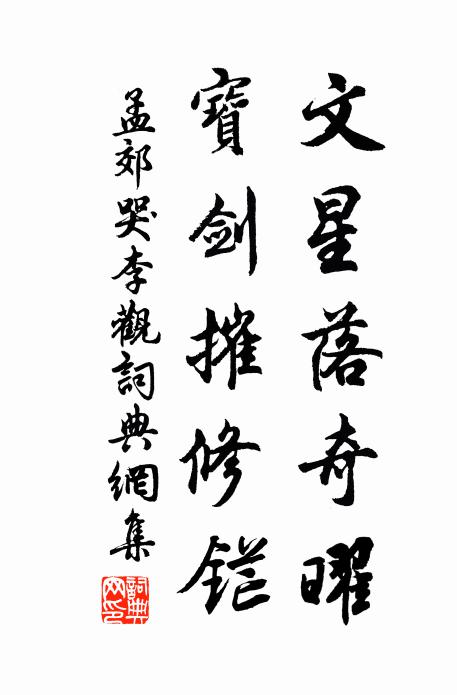 文星落奇曜
寶劍摧修鋩
孟郊哭李觀詞典網集
詞典網印